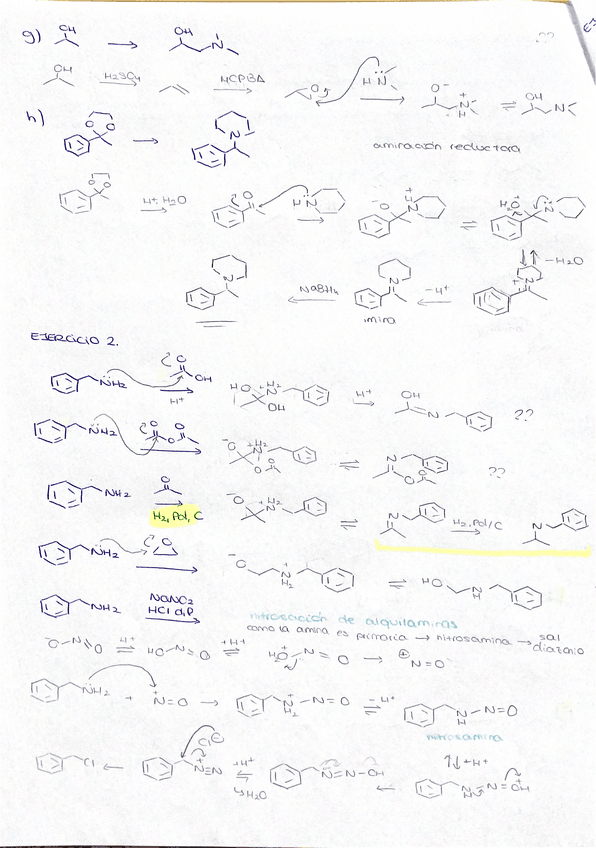 g) OH → OH N ??
OH H2SO4 → MCPBA → O HN → O- +N H ⇌ OH N
h) O O → N aminación reductora
O O H+, H2O → O HN → -O H N+ ⇌ H2O+ N
⇅ -H2O
N NaBH4 ← N -H+ ← N+
imina
EJERCICIO 2.
NH2 O OH H+ → HO +H2 N OH H+ → OH N ??
NH2 O O O → -O +H2 N O O ⇌ N O O ??
NH2 O H2, Pd, C → -O +H2 N ⇌ N H2, Pd/C → N H
NH2 O → -O +N H2 ⇌ HO N H
NH2 NaNO2 HCl dil →
nitrosación de alquilaminas
como la amina es primaria → nitrosamina → sal diazonio
-O-N=O +H+ ⇌ HO-N=O +H+ ⇌ H2O+-N=O → ⊕N=O
NH2 + +N=O → +N H2 -N=O -H+ ⇌ N H -N=O
nitrosamina
↑↓ +H+
Cl ← Cl⊖ +N≡N +H+ ⇌ H2O N=N-OH ← N H N=OH+